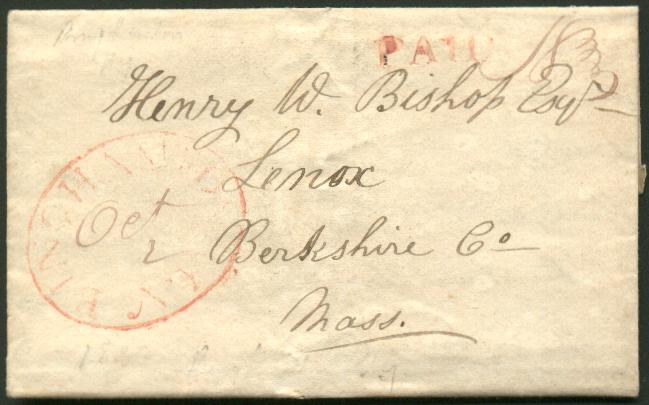 PAID 18¾
Henry W. Bishop Esqr
Lenox
Berkshire Co
Mass.
BINGHAMTON N.Y.
Oct
2